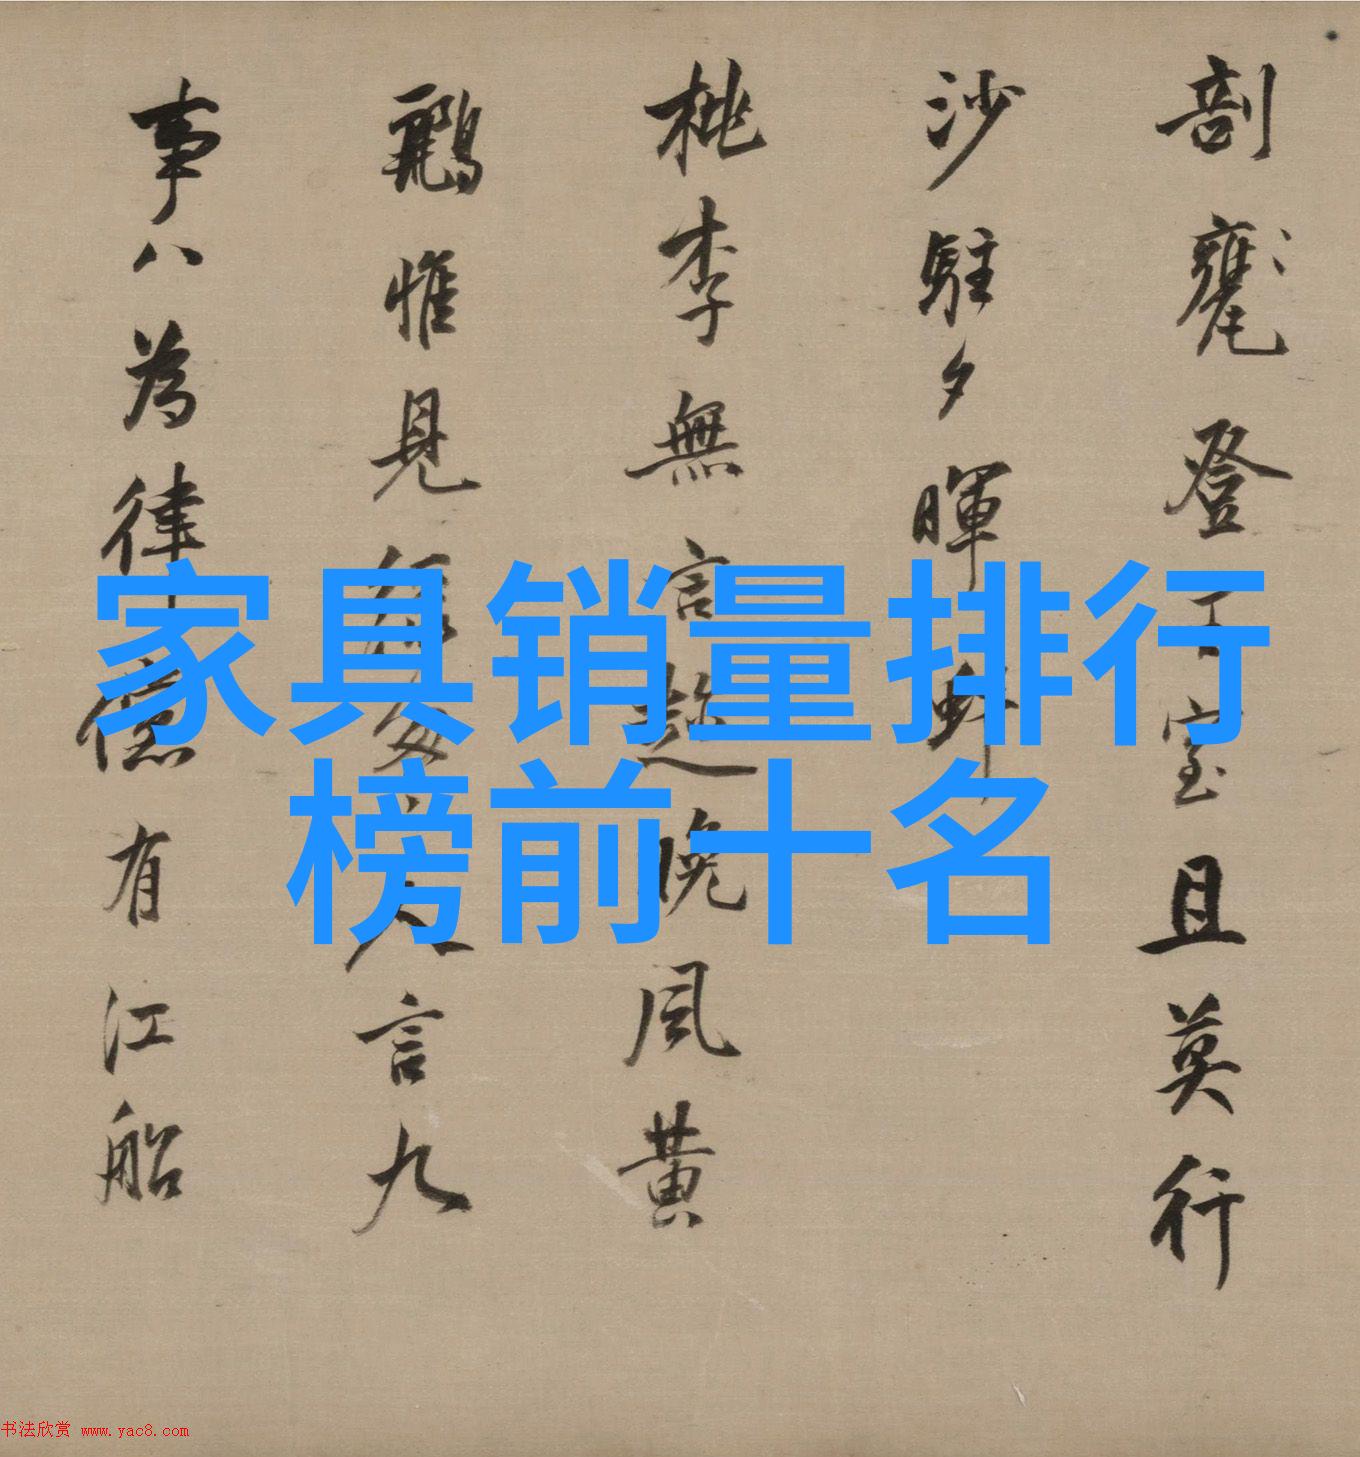 家具销量排行
榜前十名
剖甕登丁室且莫行
沙駐夕暉
桃李無言晚風黃
鸝惟見人言九
事八為律有江船
书法欣赏 www.yac8.com